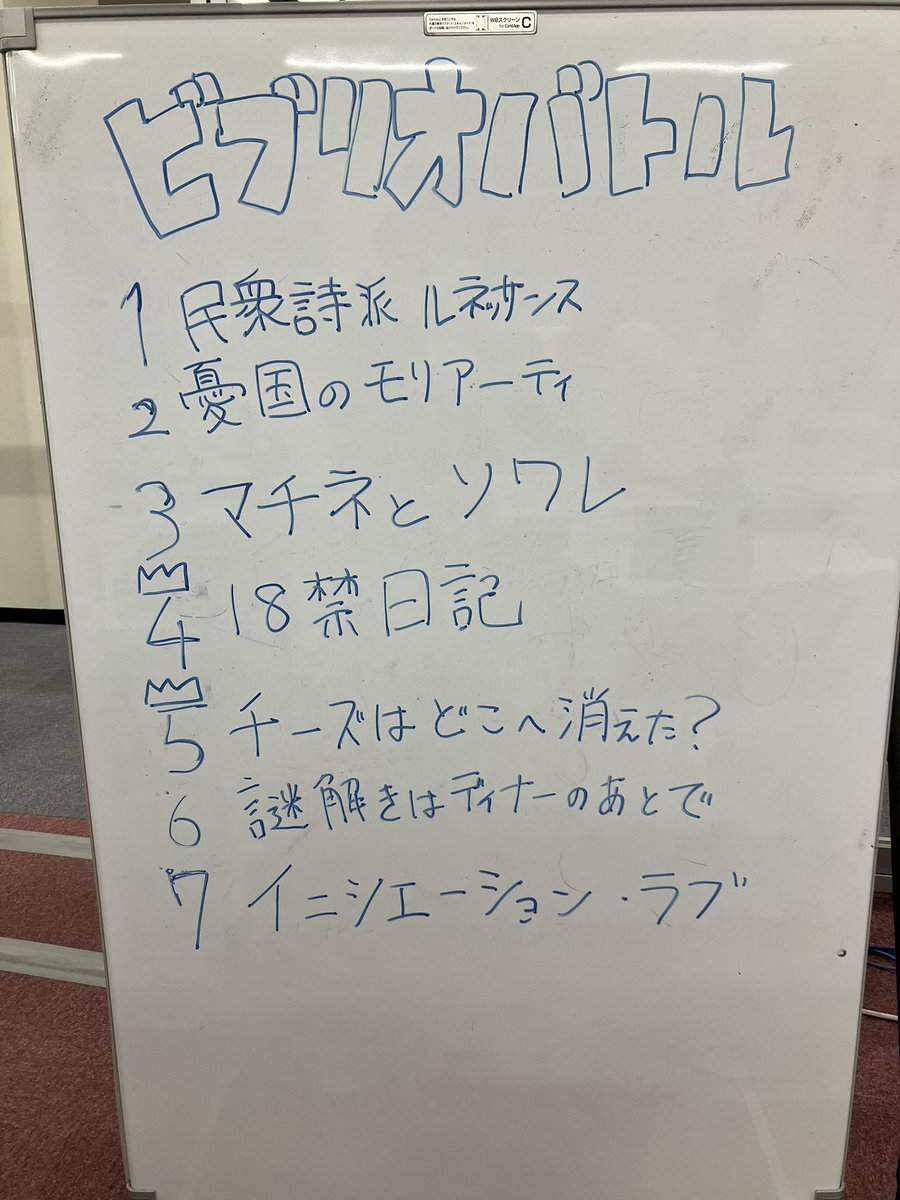 WBスクリーン
for CamiApp
C
ビブリオバトル
1 民衆詩派 ルネッサンス
2 憂国のモリアーティ
3 マチネとソワレ
4 18禁日記
5 チーズはどこへ消えた?
6 謎解きはディナーのあとで
7 イニシエーション・ラブ